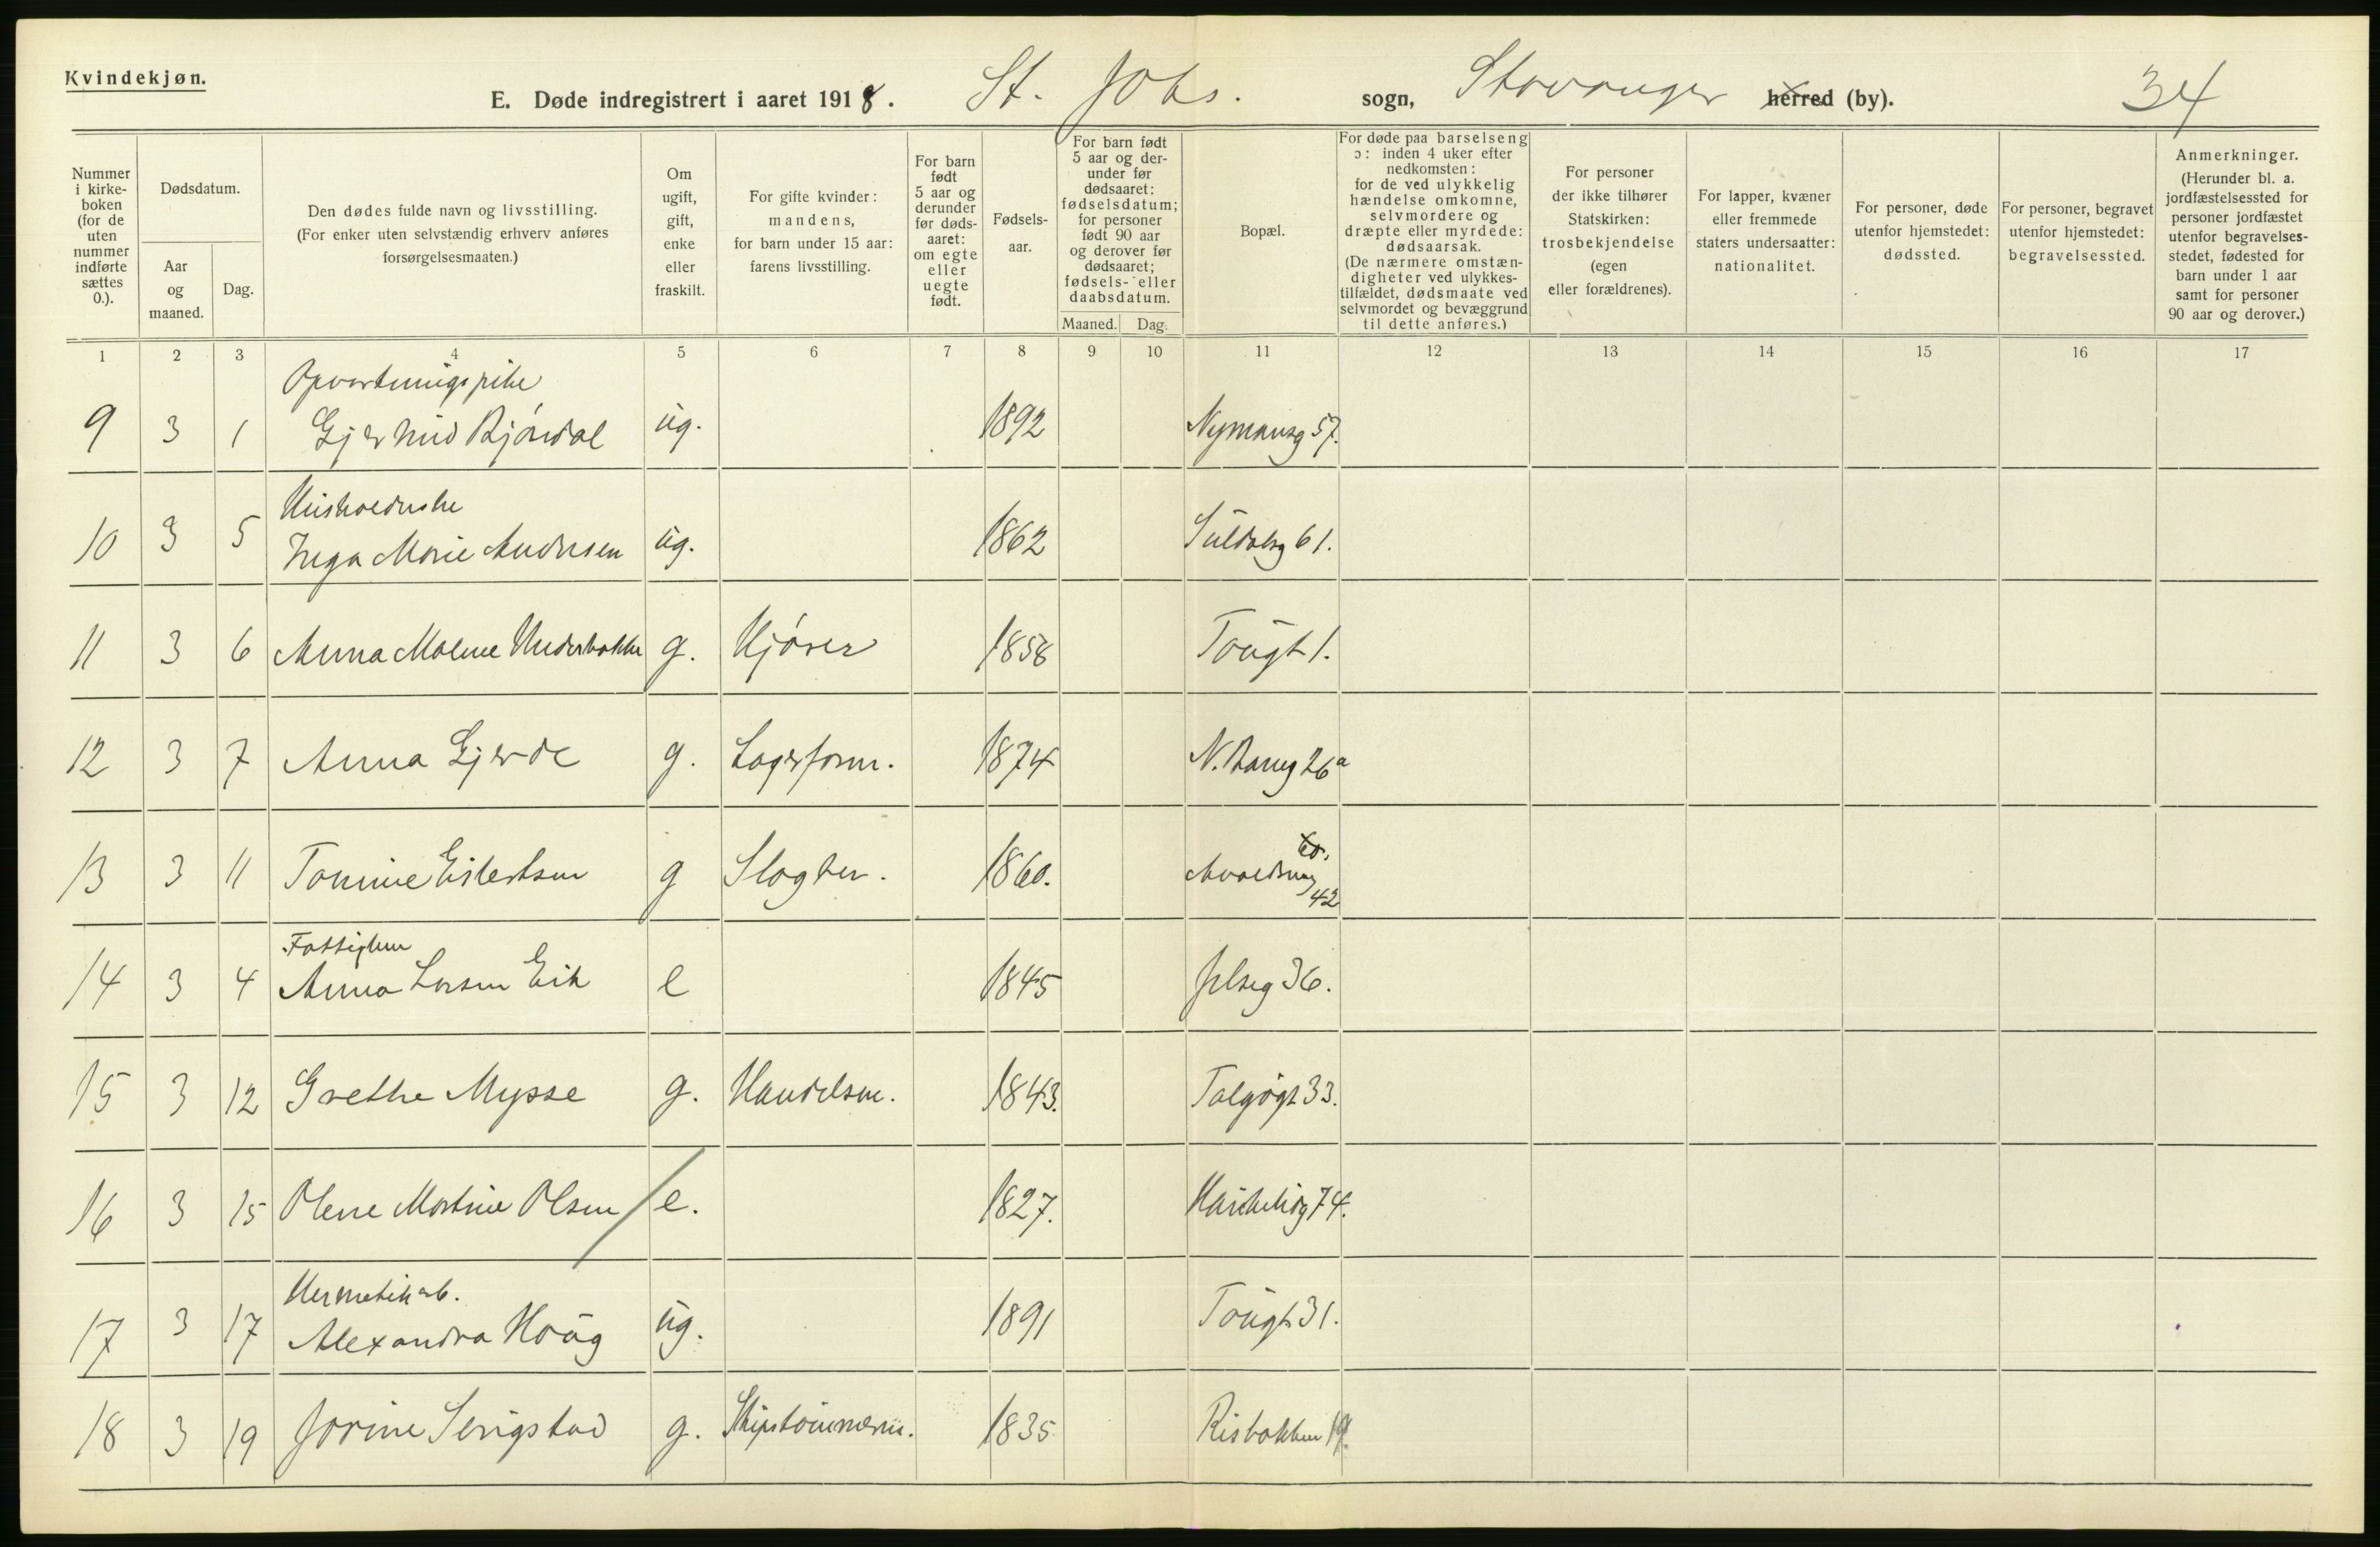 Kvindekjøn.
E. Døde indregistrert i aaret 1918. St. Johs. sogn, Stavanger herred (by). 34
Nummer i kirke-boken (for de uten nummer indførte sættes 0.).
Dødsdatum.
Aar og maaned.
Dag.
Den dødes fulde navn og livsstilling.
(For enker uten selvstændig erhverv anføres forsørgelsesmaaten.)
Om ugift, gift, enke eller fraskilt.
For gifte kvinder: mandens, for barn under 15 aar: farens livsstilling.
For barn født 5 aar og derunder før døds-aaret: om egte eller uegte født.
Fødsels-aar.
For barn født 5 aar og der-under før dødsaaret: fødselsdatum; for personer født 90 aar og derover før dødsaaret; fødsels- eller daabsdatum.
Maaned. Dag.
Bopæl.
For døde paa barselseng ɔ: inden 4 uker efter nedkomsten: for de ved ulykkelig hændelse omkomne, selvmordere og dræpte eller myrdede: dødsaarsak. (De nærmere omstæn-digheter ved ulykkes-tilfældet, dødsmaate ved selvmordet og bevæggrund til dette anføres.)
For personer der ikke tilhører Statskirken: trosbekjendelse (egen eller forældrenes).
For lapper, kvæner eller fremmede staters undersaatter: nationalitet.
For personer, døde utenfor hjemstedet: dødssted.
For personer, begravet utenfor hjemstedet: begravelsessted.
Anmerkninger. (Herunder bl. a. jordfæstelsessted for personer jordfæstet utenfor begravelses-stedet, fødested for barn under 1 aar samt for personer 90 aar og derover.)
1 2 3 4 5 6 7 8 9 10 11 12 13 14 15 16 17
Opvartningspike
9 3 1 Gjerthrud Bjørdal ug. 1892 Nymansg 57.
Husholderske
10 3 5 Inga Marie Andersen ug. 1862 Suldalsg 61.
11 3 6 Anna Malene Underbakke g. Kjører 1858 Taugt 1.
12 3 7 Anna Gjerde g. Lagerform. 1874 26a
13 3 11 Tomine Eilertsen g Slagter. 1860. 42
Fattiglem
14 3 4 Anna Larsen Eik e 1845 Jelseg 36.
15 3 12 Grethe Mysse g. Handelsm. 1843. Talgøgt 33.
16 3 15 Olene Martine Olsen e. 1827. Haukeligt 74.
Hermetikarb.
17 3 17 Alexandra Haug ug. 1891 Taugt 31.
18 3 19 Jorine Serigstad g. Skipstømmerm. 1835 Risbakken 19.